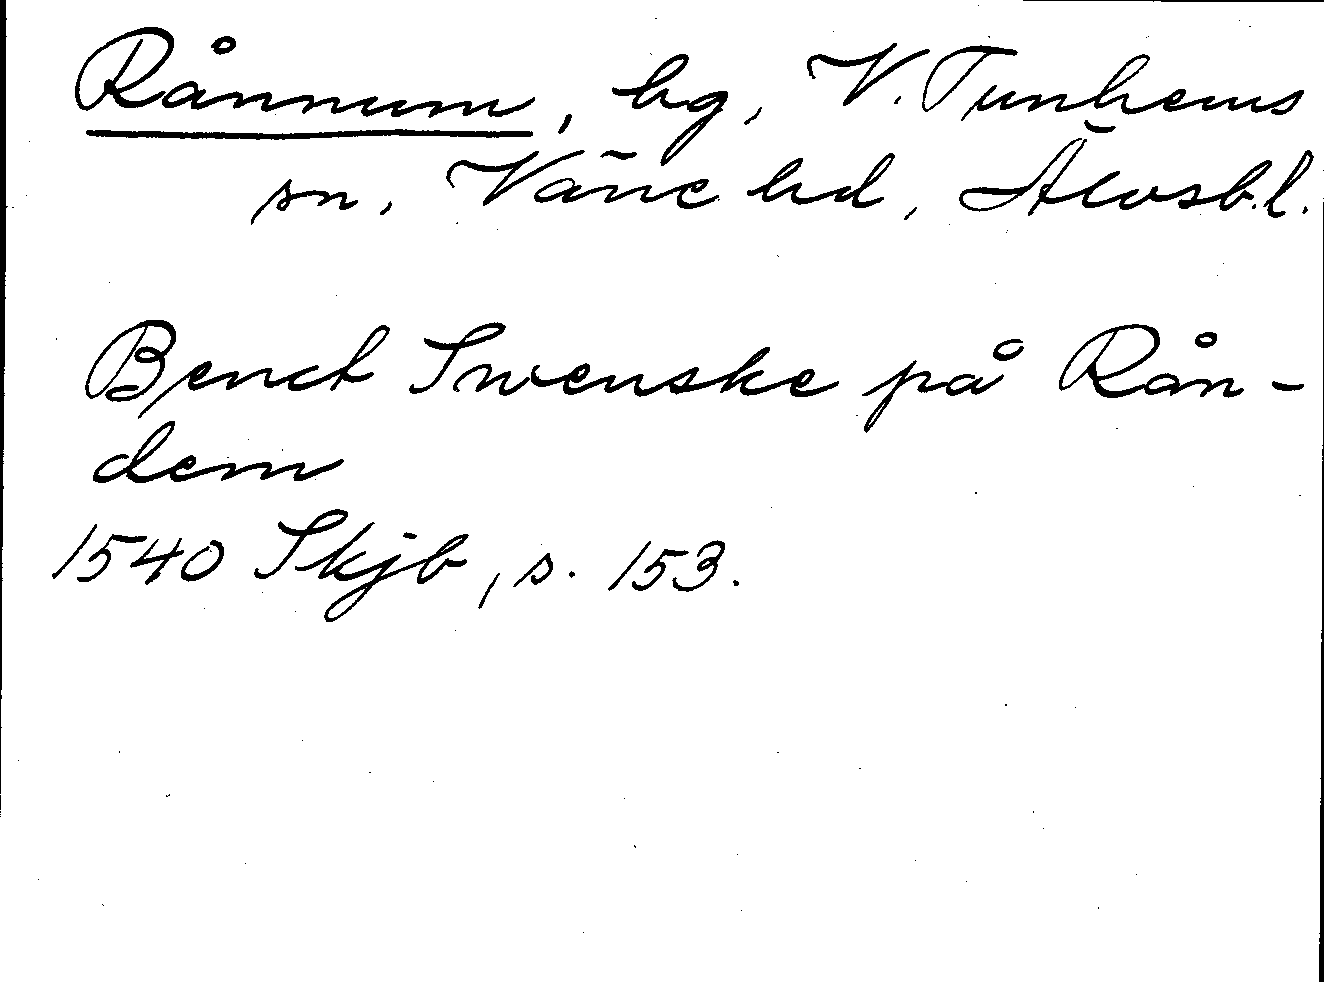 Rånnum, hg, V. Tunhems
sn, Väne hd, Älvsb.l.
Benct Swenske på Rån-
dem
1540 Skjb, s. 153.